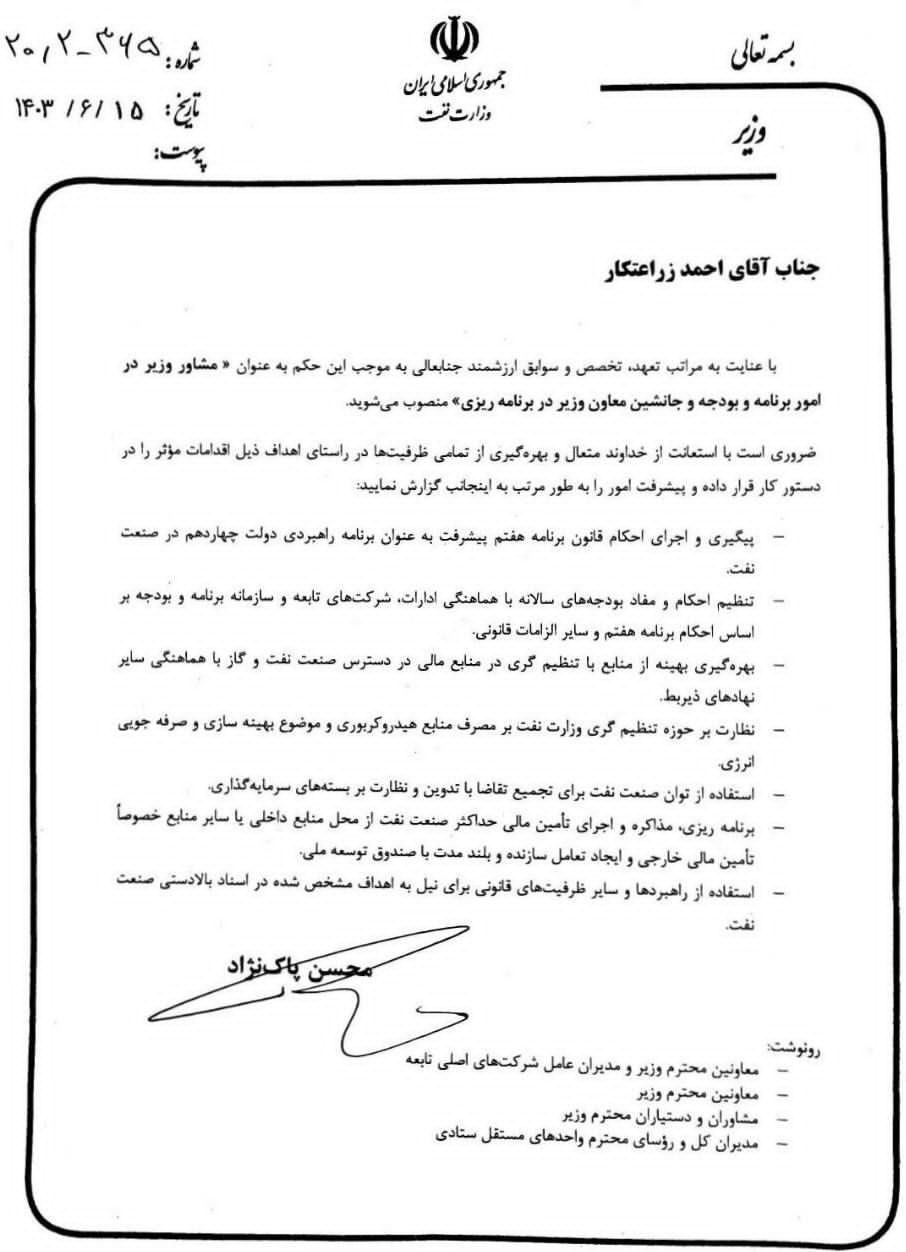 بسمه تعالی
جمهوری اسلامی ایران
وزارت نفت
وزیر
شماره: ۲۰٫۲-۳۶۵
تاریخ: ۱۴۰۳ /۶/ ۱۵
پیوست:
جناب آقای احمد زراعتکار
با عنایت به مراتب تعهد، تخصص و سوابق ارزشمند جنابعالی به موجب این حکم به عنوان « مشاور وزیر در
امور برنامه و بودجه و جانشین معاون وزیر در برنامه ریزی» منصوب می‌شوید.
ضروری است با استعانت از خداوند متعال و بهره‌گیری از تمامی ظرفیت‌ها در راستای اهداف ذیل اقدامات مؤثر را در
دستور کار قرار داده و پیشرفت امور را به طور مرتب به اینجانب گزارش نمایید:
– پیگیری و اجرای احکام قانون برنامه هفتم پیشرفت به عنوان برنامه راهبردی دولت چهاردهم در صنعت
نفت.
– تنظیم احکام و مفاد بودجه‌های سالانه با هماهنگی ادارات، شرکت‌های تابعه و سازمانه برنامه و بودجه بر
اساس احکام برنامه هفتم و سایر الزامات قانونی.
– بهره‌گیری بهینه از منابع با تنظیم گری در منابع مالی در دسترس صنعت نفت و گاز با هماهنگی سایر
نهادهای ذیربط.
– نظارت بر حوزه تنظیم گری وزارت نفت بر مصرف منابع هیدروکربوری و موضوع بهینه سازی و صرفه جویی
انرژی.
– استفاده از توان صنعت نفت برای تجمیع تقاضا با تدوین و نظارت بر بسته‌های سرمایه‌گذاری.
– برنامه ریزی، مذاکره و اجرای تأمین مالی حداکثر صنعت نفت از محل منابع داخلی یا سایر منابع خصوصاً
تأمین مالی خارجی و ایجاد تعامل سازنده و بلند مدت با صندوق توسعه ملی.
– استفاده از راهبردها و سایر ظرفیت‌های قانونی برای نیل به اهداف مشخص شده در اسناد بالادستی صنعت
نفت.
محسن پاک‌نژاد
رونوشت:
– معاونین محترم وزیر و مدیران عامل شرکت‌های اصلی تابعه
– معاونین محترم وزیر
– مشاوران و دستیاران محترم وزیر
– مدیران کل و رؤسای محترم واحدهای مستقل ستادی